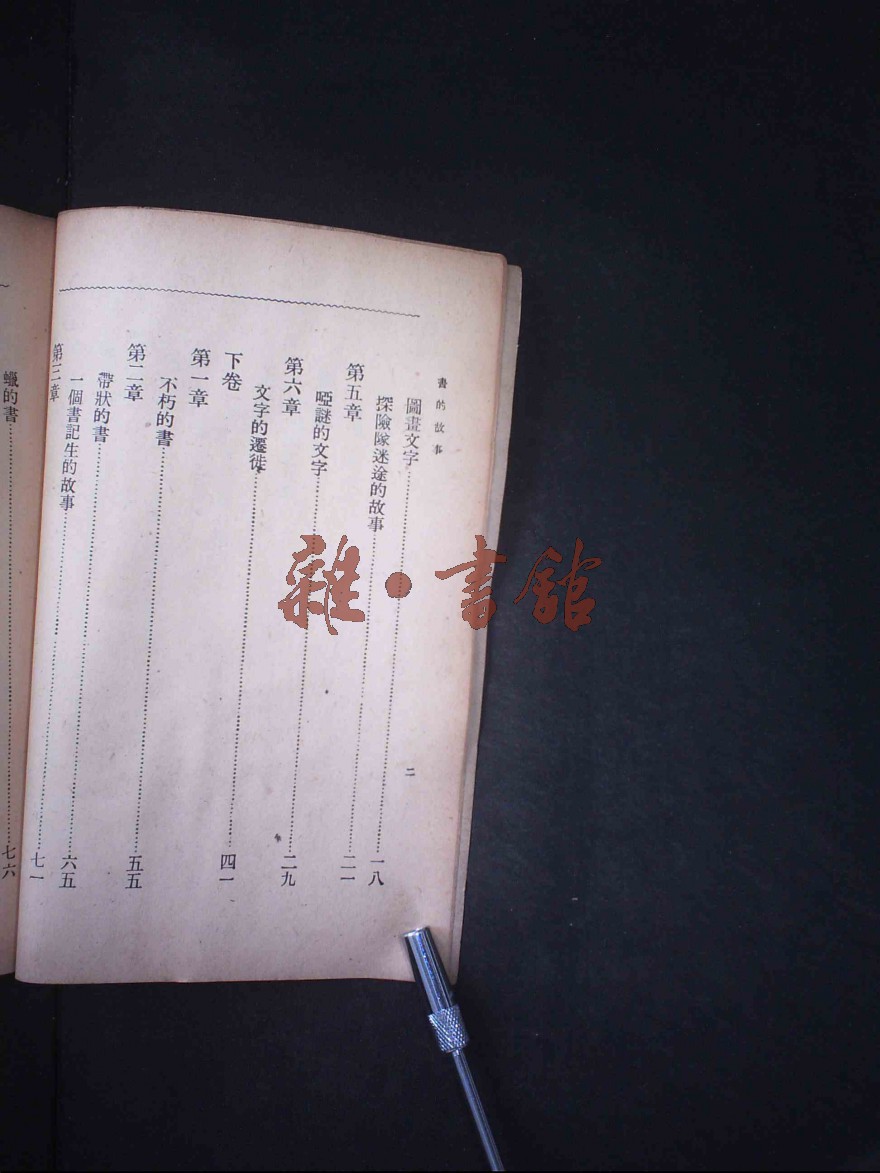 書的故事
二
圖畫文字……一八
探險隊迷途的故事……二一
第五章
啞謎的文字……二九
第六章
文字的遷徙……四一
下卷
第一章
不朽的書……五五
第二章
帶狀的書……六五
一個書記生的故事……七一
第三章
蠟的書……七六
雜·書館